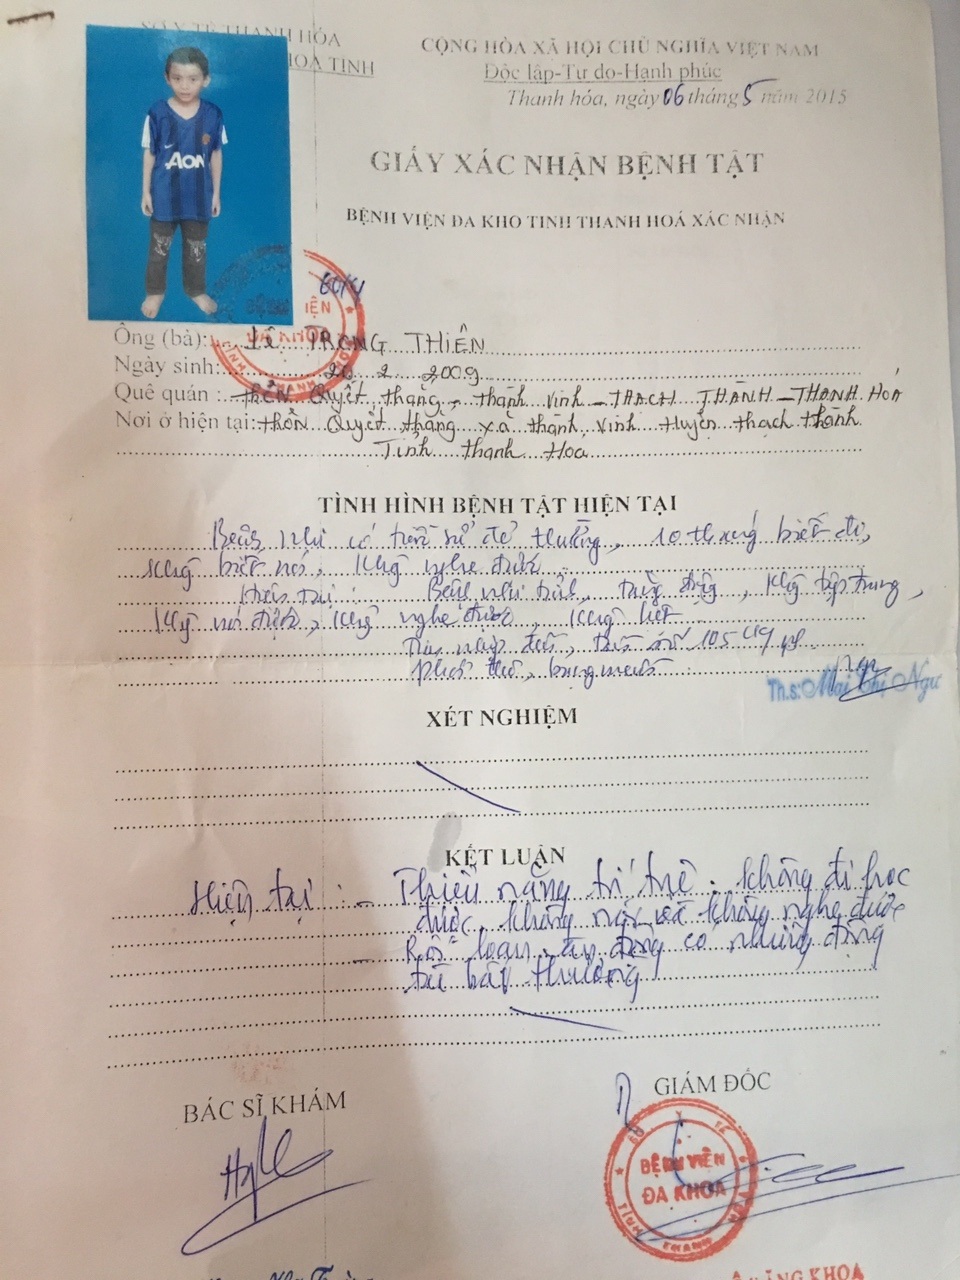 SỞ Y TẾ THANH HÓA
KHOA TỈNH
CỘNG HÒA XÃ HỘI CHỦ NGHĨA VIỆT NAM
Độc lập-Tự do-Hạnh phúc
Thanh hóa, ngày 06 tháng 5 năm 2015
AON
GIẤY XÁC NHẬN BỆNH TẬT
BỆNH VIỆN ĐA KHO TỈNH THANH HOÁ XÁC NHẬN
BỆNH VIỆN
ĐA KHOA
Ông (bà): Lê TRỌNG THIÊN
Ngày sinh: 20 2 2009
Quê quán : thôn Quyết thắng - thành Vinh - THẠCH THÀNH - THANH HOÁ
Nơi ở hiện tại: thôn Quyết thắng xã thành Vinh Huyện thạch thành
Tỉnh thanh Hoá
TÌNH HÌNH BỆNH TẬT HIỆN TẠI
Bệnh nhi có tiền sử đẻ thường, 10 tháng biết đi,
không biết nói, không nghe được
Hiện tại: Bệnh nhi tỉnh, tăng động, không tập trung,
không nói được, không nghe được, không liệt
Th.s: Mai Thị Ngư
XÉT NGHIỆM
KẾT LUẬN
Hiện tại: - Thiểu năng trí tuệ. không đi học
được, không nói và không nghe được
- Rối loạn có những động
bất thường
BÁC SĨ KHÁM
GIÁM ĐỐC
BỆNH VIỆN
ĐA KHOA